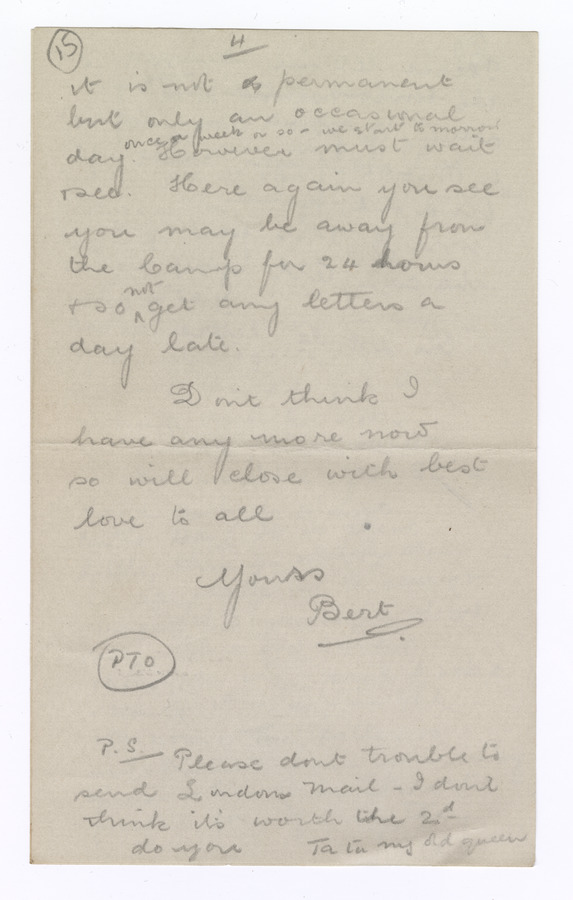 15
4
it is not a permanent
but only an occasional
once a week or so - we start to morrow
day. However must wait
& see. Here again you see
you may be away from
the Camp for 24 hours
& so not get any letters a
day late.
Dont think I
have any more now
so will close with best
love to all
Yours
Bert
PTO
P.S. Please dont trouble to
send London Mail - I dont
think its worth the 2d
do you Ta ta my old queen